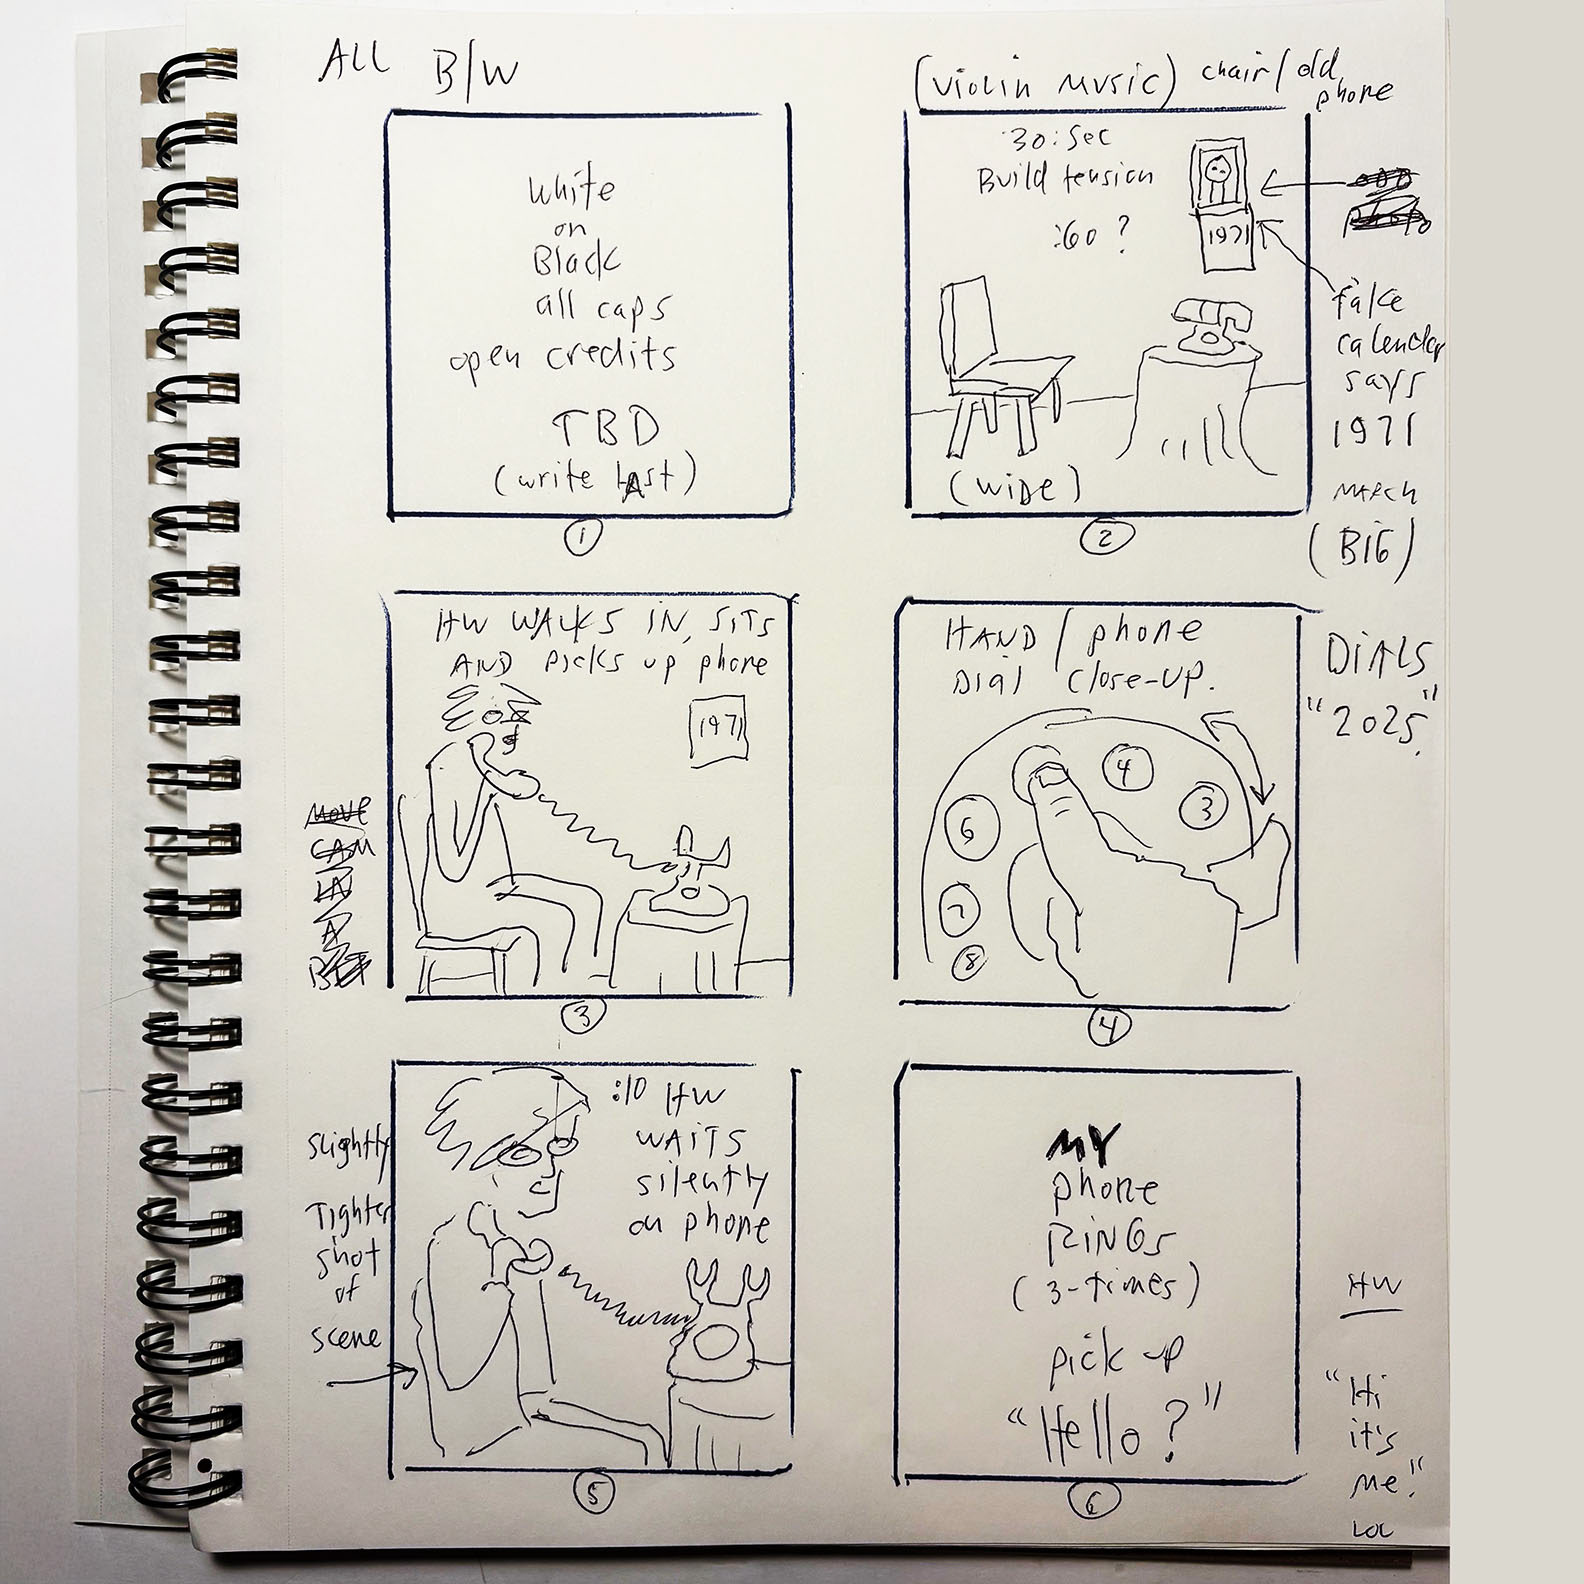 ALL B/W
white
on
Black
all caps
open credits
TBD
(write LAst)
1
(Violin Music) chair/old phone
30:sec
Build tension
:60 ?
1971
(WIDE)
2
fake
calendar
says
1971
MARCH
(BIG)
HW WALKS IN, SITS
AND picks up phone
1971
MOVE
CAM
3
HAND / phone
Dial close-up.
4
3
6
7
8
4
DIALS
"2025"
:10 HW
WAITS
silently
on phone
slightly
Tighter
shot
of
scene
5
MY
phone
RINGS
(3-times)
pick up
"Hello?"
6
HW
"Hi
it's
me!"
LOL